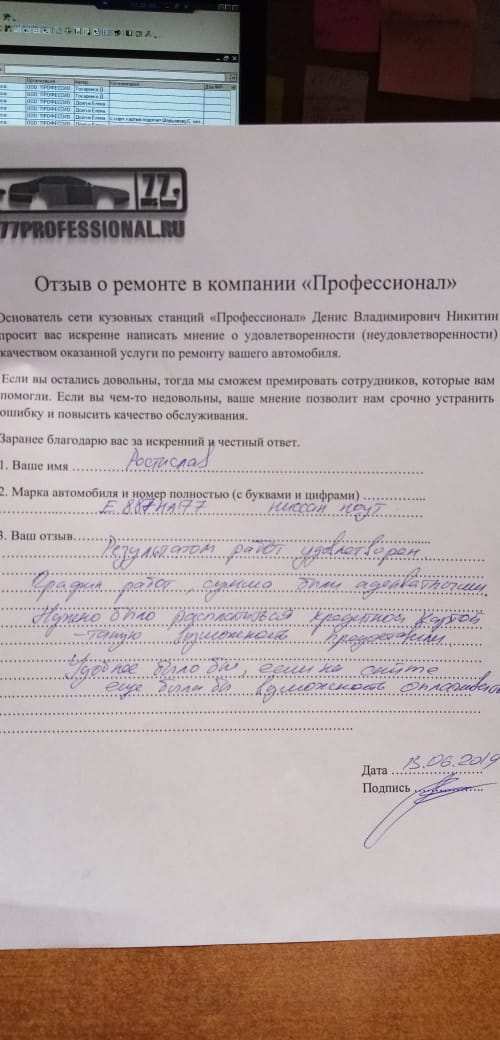 77
77PROFESSIONAL.RU
Отзыв о ремонте в компании «Профессионал»
Основатель сети кузовных станций «Профессионал» Денис Владимирович Никитин
просит вас искренне написать мнение о удовлетворенности (неудовлетворенности)
качеством оказанной услуги по ремонту вашего автомобиля.
Если вы остались довольны, тогда мы сможем премировать сотрудников, которые вам
помогли. Если вы чем-то недовольны, ваше мнение позволит нам срочно устранить
ошибку и повысить качество обслуживания.
Заранее благодарю вас за искренний и честный ответ.
1. Ваше имя Ростислав
2. Марка автомобиля и номер полностью (с буквами и цифрами)
ниссан ноут
3. Ваш отзыв
Результатом работ удовлетворен.
График работ, сумма были адекватными.
Нужно было расплатиться кредитной картой
- такую возможность предоставили.
Удобнее было бы, если на сайте
еще была бы возможность оплачивать
Дата 13.06.2019
Подпись